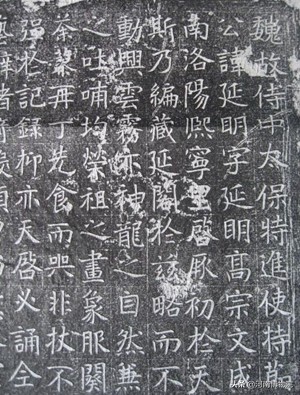 魏故侍中太保特進使持節
公諱延明字延明高宗文成
南洛陽熙寧里啓厥初於天
斯乃編藏延閣於茲略而不
動興雲霧亦神龍之自然兼
之吐哺均榮祖之畫象服闋
荼蓼再丁先食而哭非杖不
强於記録抑亦天啓必誦全
头条@河南博物院